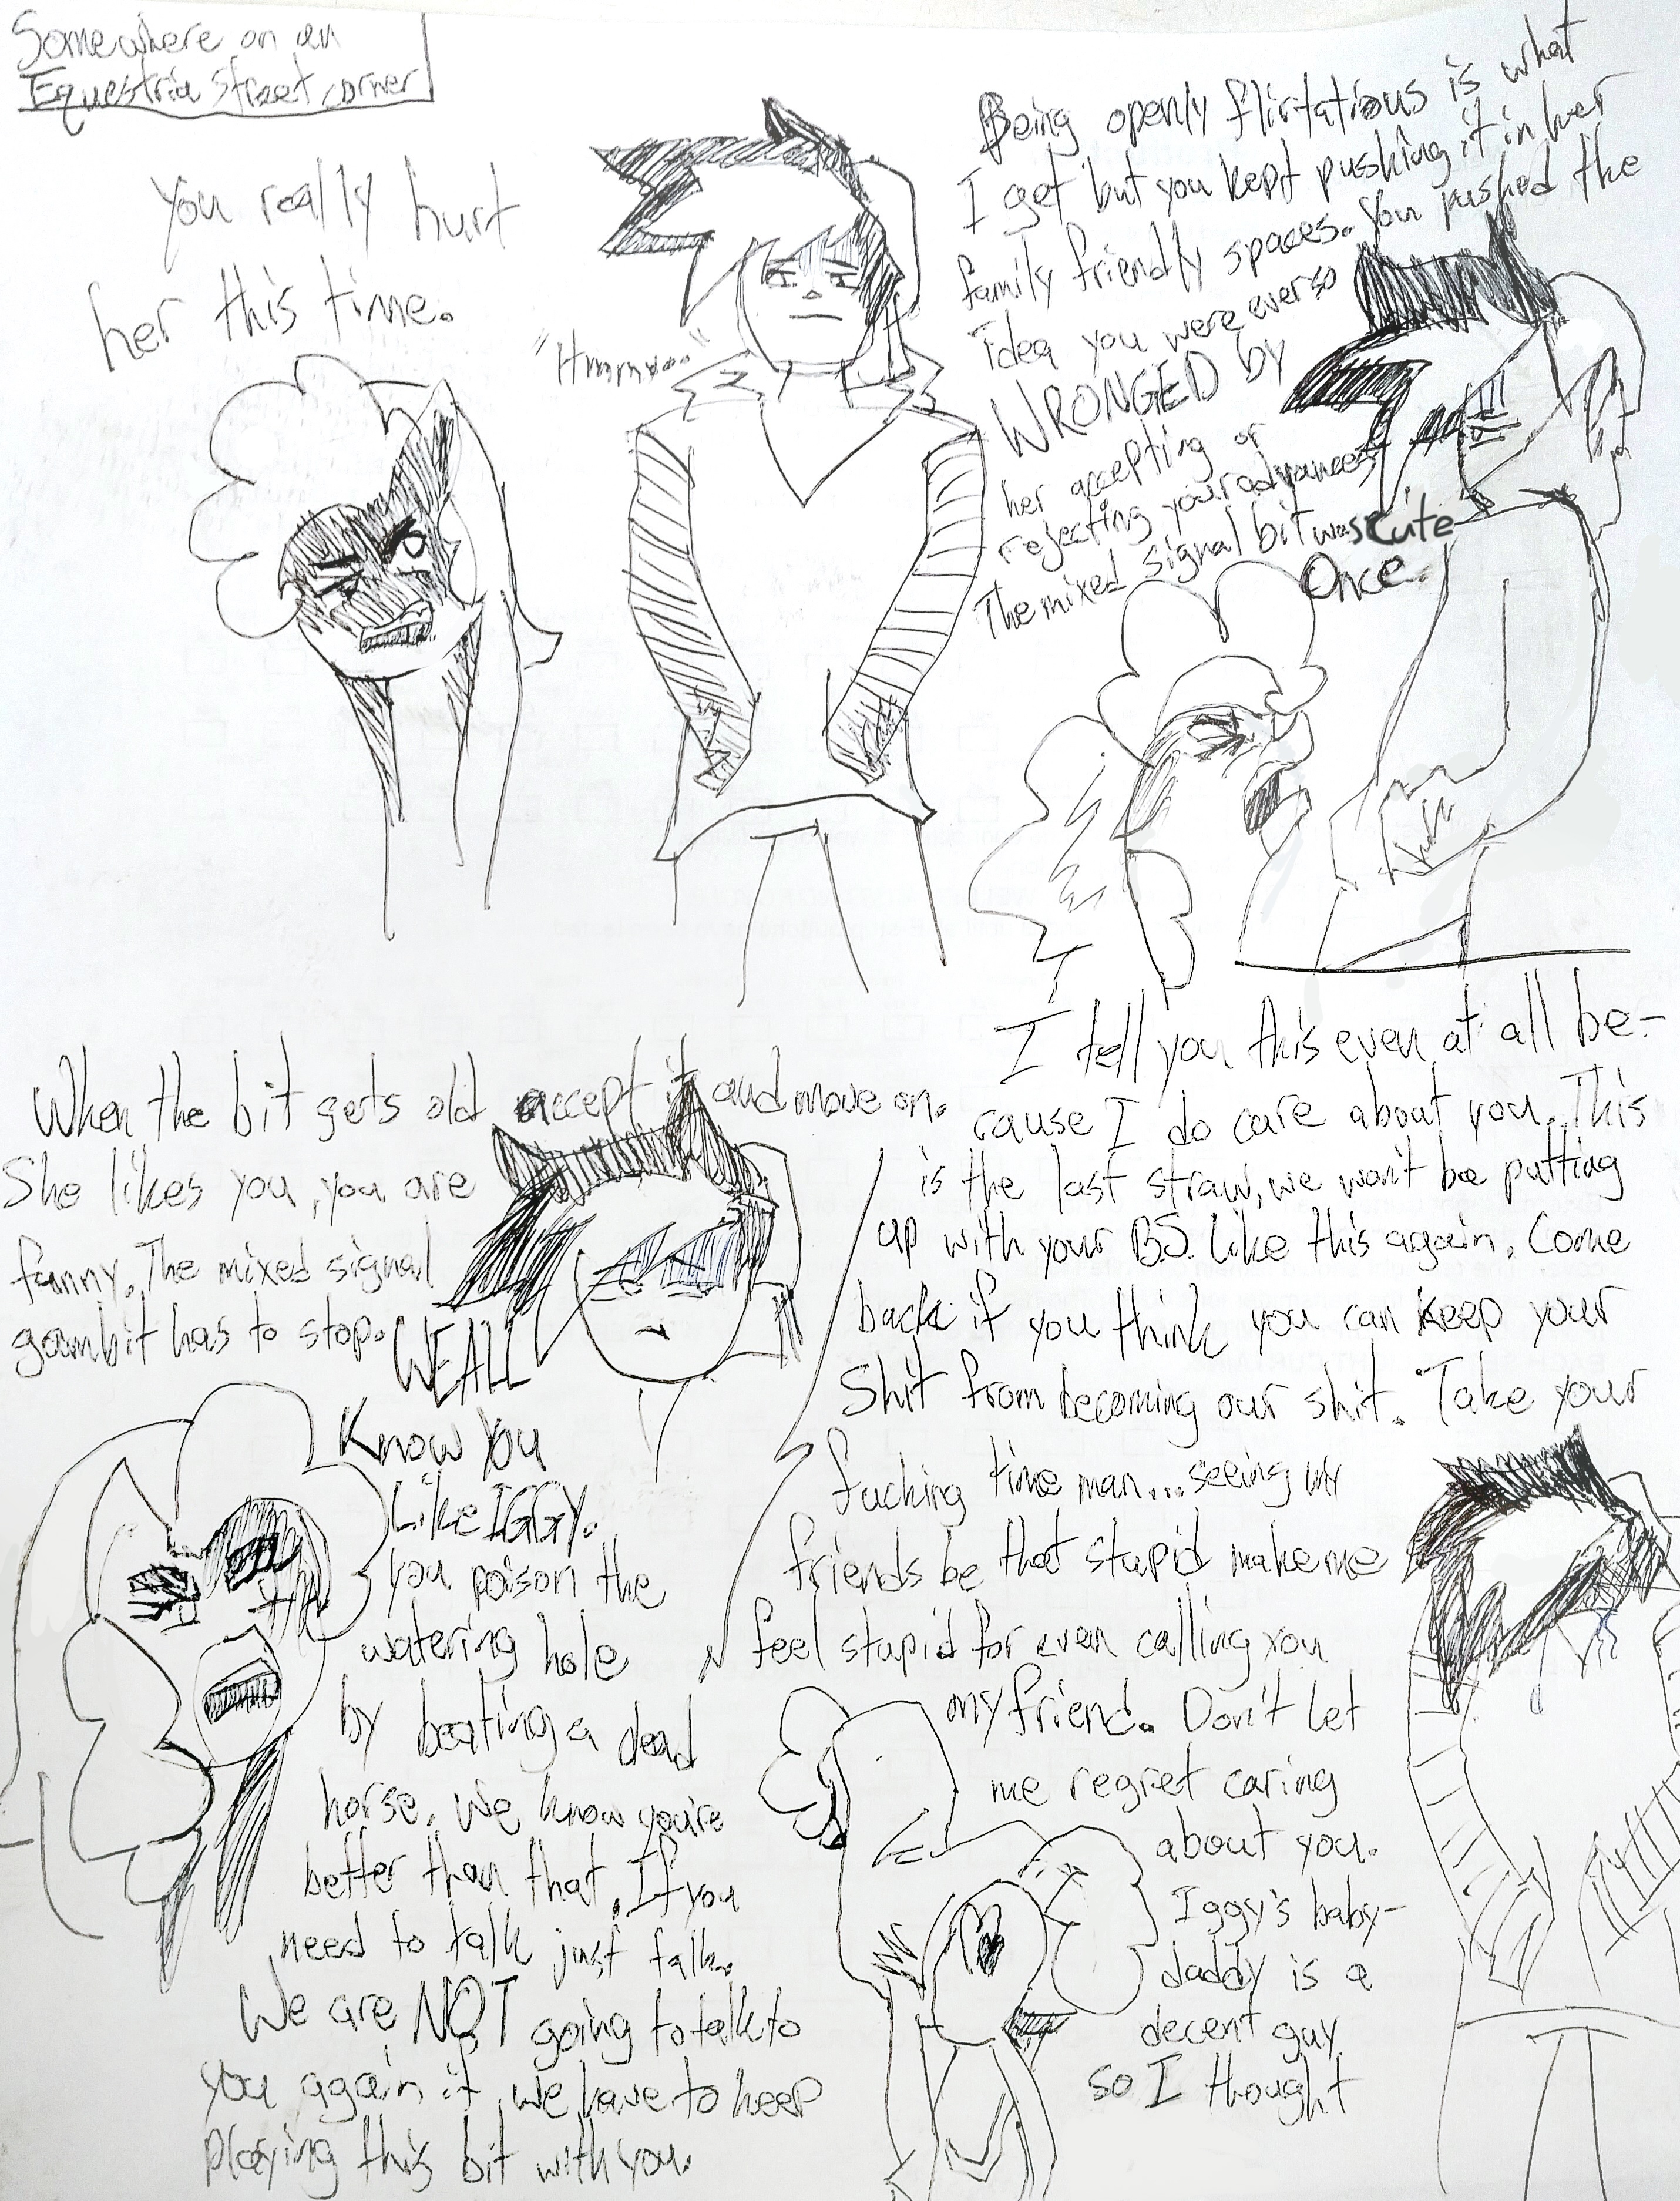 Somewhere on an
Equestria street corner
You really hurt
her this time.
"Hmmm..."
Being openly flirtatious is what
I get but you kept pushing it in her
family friendly spaces. You pushed the
idea you were ever so
WRONGED by
her accepting or
rejecting your advances
The mixed signal bit was Cute
Once.
When the bit gets old accept it and move on.
She likes you, you are
funny. The mixed signal
gambit has to stop.
WE ALL
Know You
Like IGGY.
you poison the
watering hole
by beating a dead
horse. We know you're
better than that. If you
need to talk just talk.
We are NOT going to talk to
you again if we have to keep
playing this bit with you.
I tell you this even at all be-
cause I do care about you. This
is the last straw, we won't be putting
up with your B.S. like this again. Come
back if you think you can keep your
Shit from becoming our shit. Take your
fucking time man... seeing my
friends be that stupid make me
feel stupid for even calling you
my friend. Don't let
me regret caring
about you.
Iggy's baby-
daddy is a
decent guy
so I thought